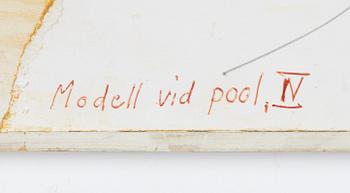 Modell vid pool, IV